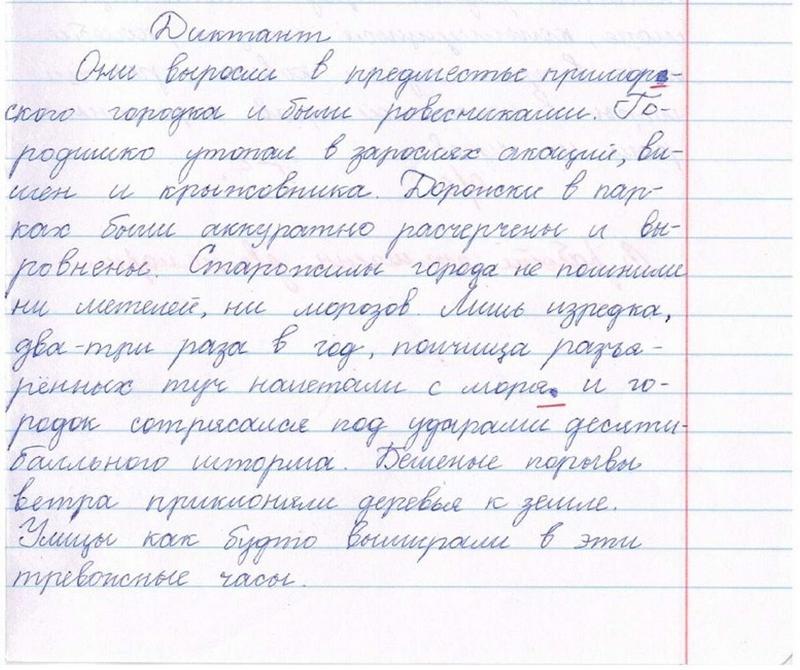 Диктант
Они выросли в предместье примор-
ского городка и были ровесниками. Го-
родишко утопал в зарослях акаций, ви-
шен и крыжовника. Дорожки в пар-
ках были аккуратно расчерчены и вы-
ровнены. Старожилы города не помнили
ни метелей, ни морозов. Лишь изредка,
два-три раза в год, полчища разъя-
рённых туч налетали с моря, и го-
родок сотрясался под ударами десяти-
балльного шторма. Бешеные порывы
ветра приклоняли деревья к земле.
Улицы как будто вымирали в эти
тревожные часы.